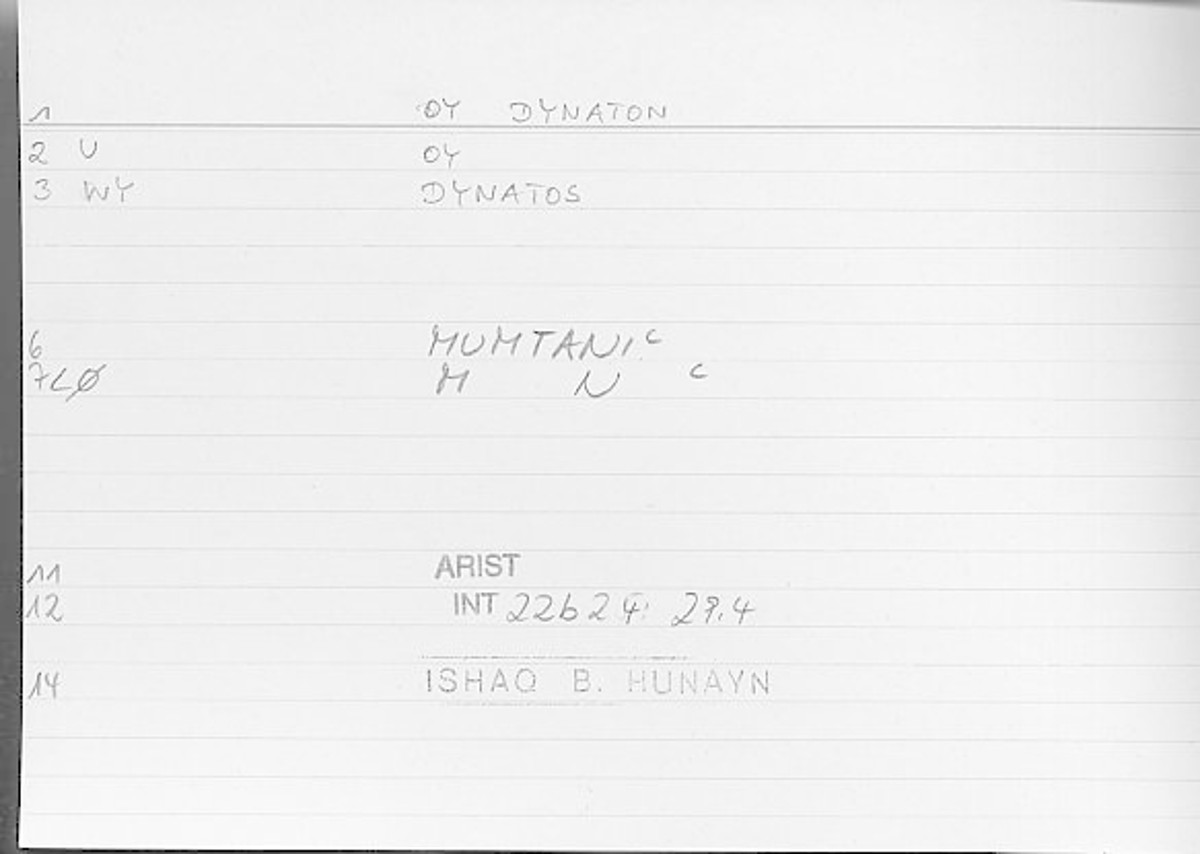 1 OY DYNATON
2 U OY
3 WY DYNATOS
6 MUMTANIC
7 LØ M N C
11 ARIST
12 INT 22b24: 29.4
14 ISHAQ B. HUNAYN